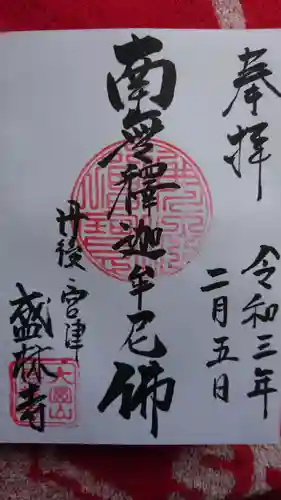 奉拝
令和三年
二月五日
南無釋迦牟尼佛
丹後宮津
盛林寺
大圓山